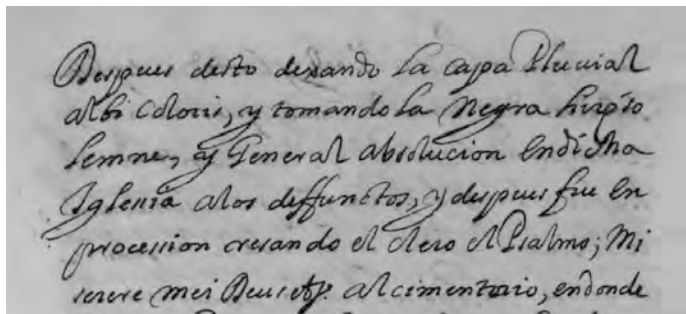 Despues desto dexando la capa Pluvial
albi coloris, y tomando la Negra hizo so
lemne, y General absolucion en dicha
Iglesia alos diffunctos, y despues fue en
procession cresando el clero el Psalmo; Mi
serere mei Deus etc. al cimenterio, en donde